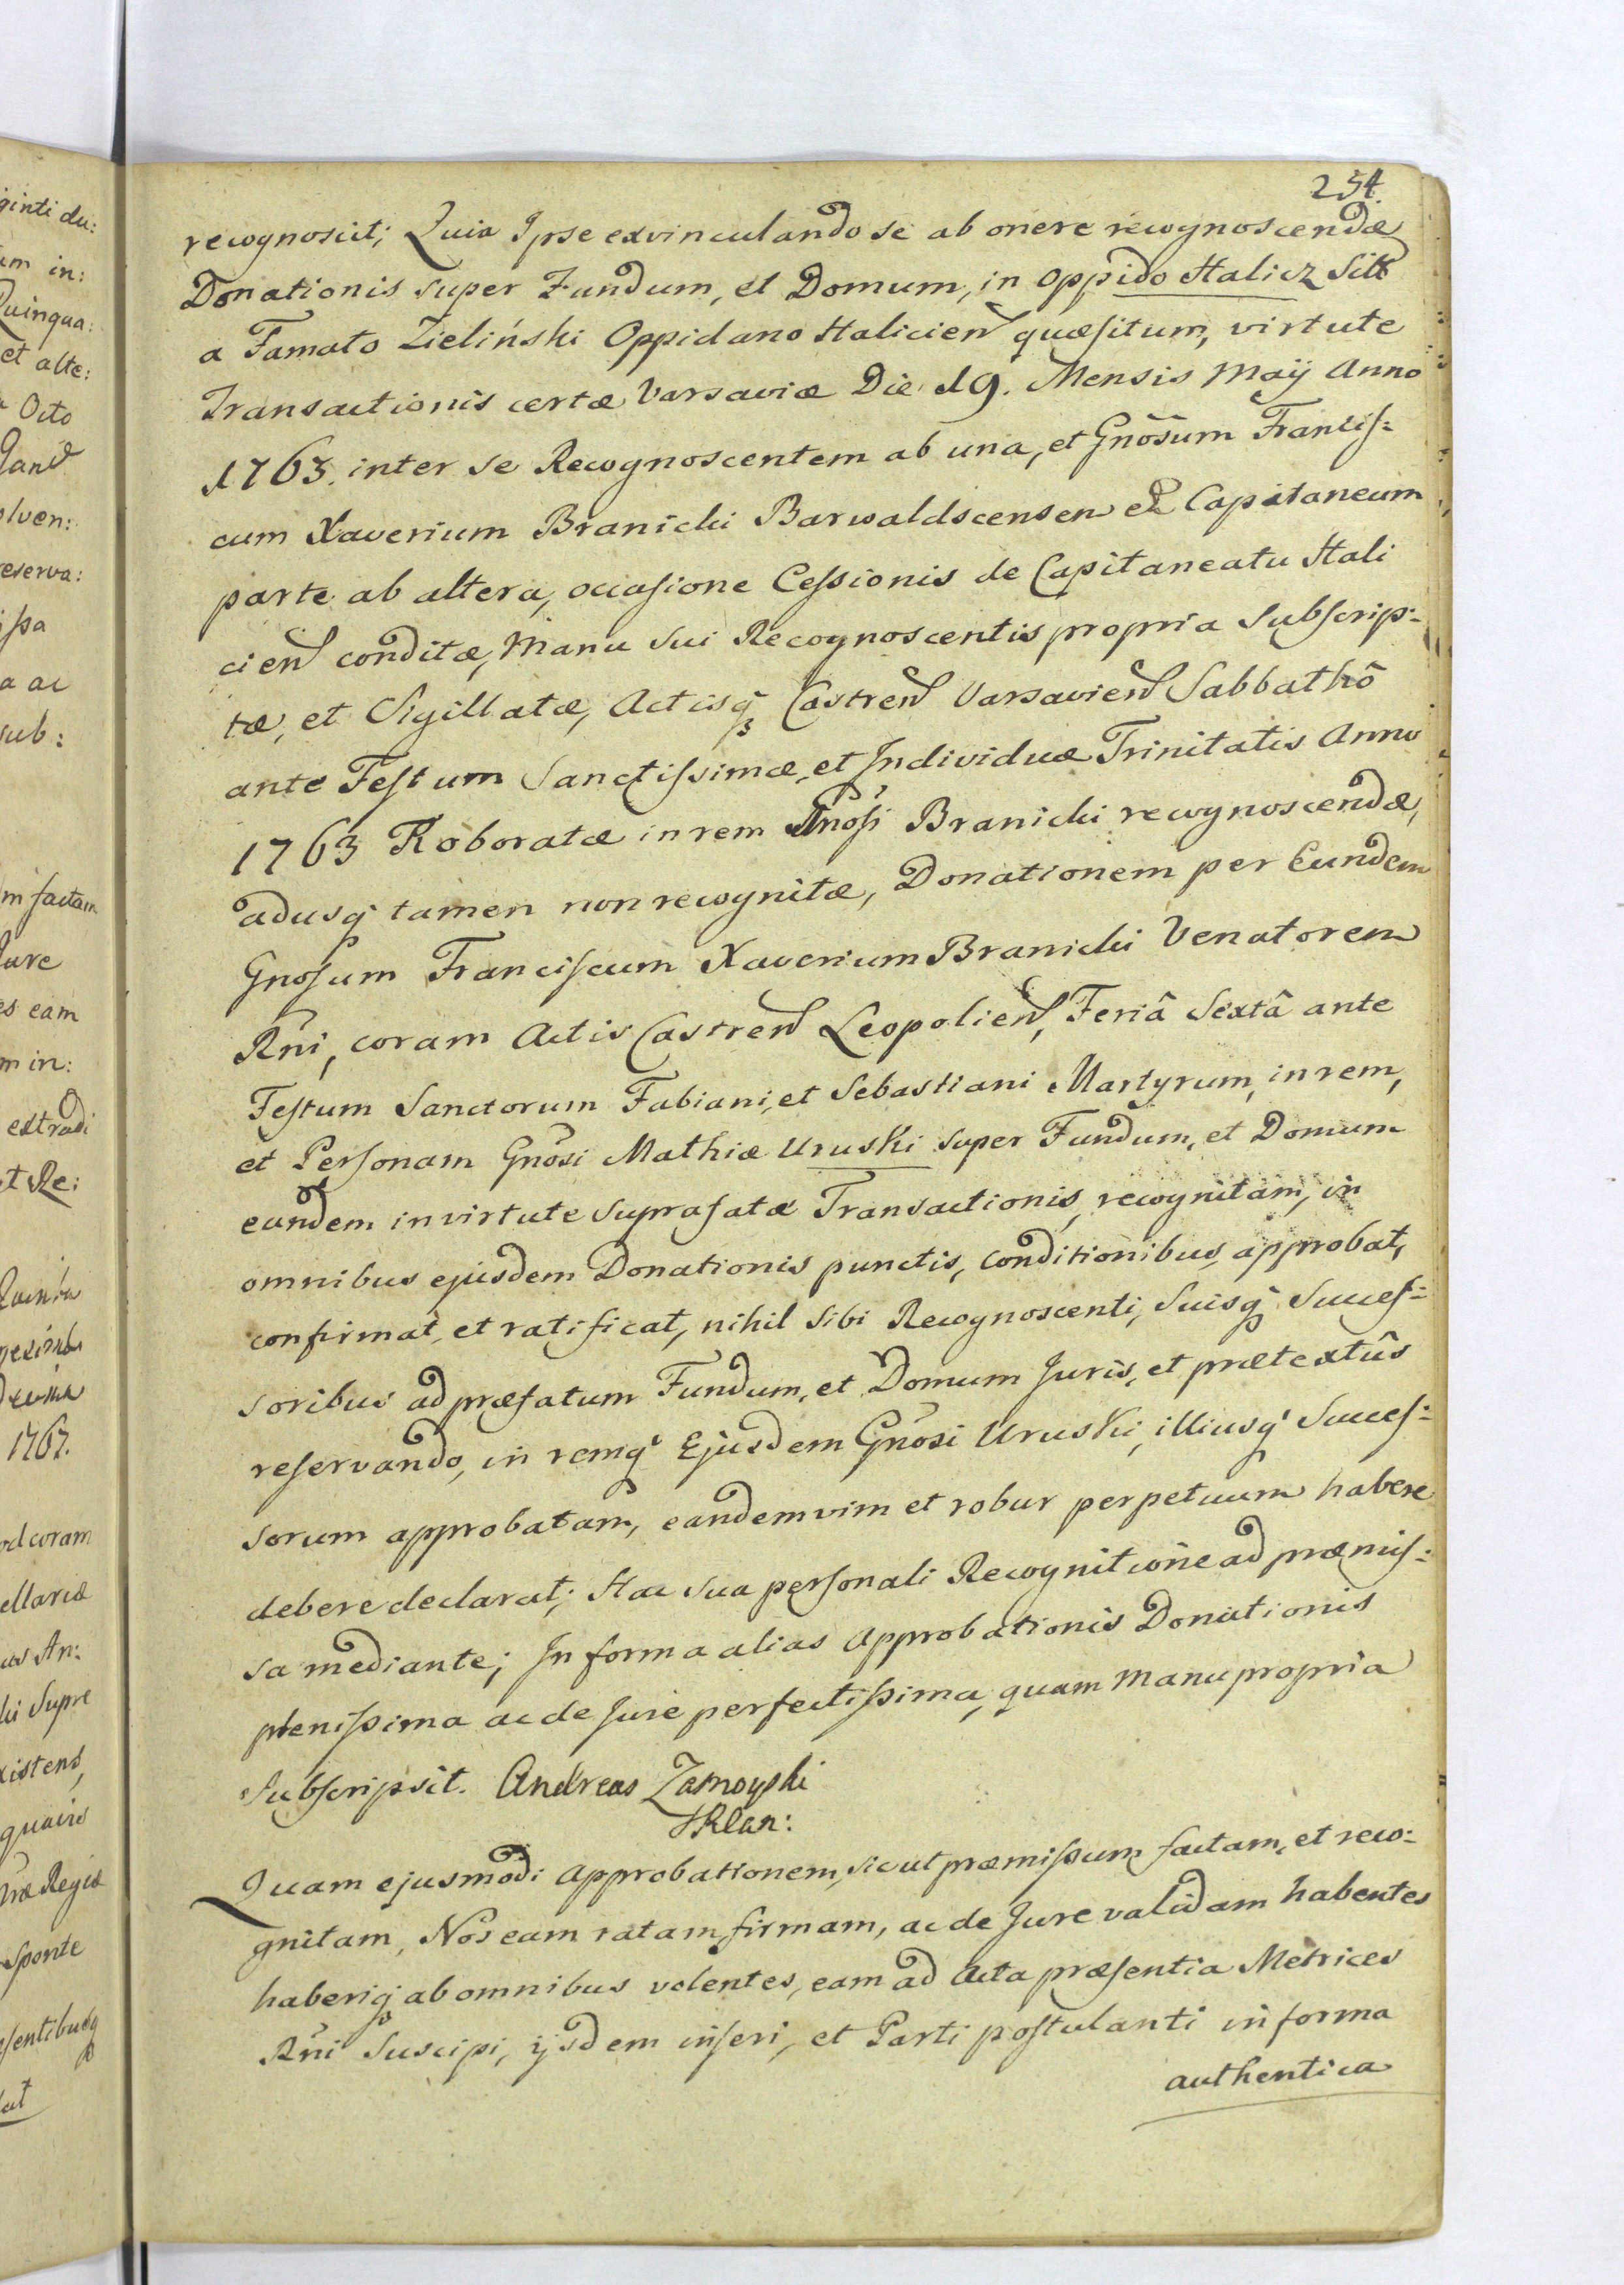 ginti du:
um in:
Quinqua:
et alte:
Octo
olven:
reserva:
issa
a ac
sub:
m factam
Jure
es eam
m in:
extradi
et Re:
1767.
od coram
ellariæ
us An:
ki Supre
xistens,
quam
Nræ Regiæ
sponte
sentibusq
254.
recognoscit; Quia Ipse exvinculando se ab onere recognoscendæ
Donationis super Fundum, et Domum, in oppido Halicz Sitt
a Famato Zieliński Oppidano Halicien quæsitum, virtute
Transactionis certæ Varsaviæ Die 19. Mensis Maij Anno
1763. inter se Recognoscentem ab una, et Gnosum Francis:
cum Xaverium Branicki Barwaldscensem et Capitaneum
parte ab altera, occasione Cessionis de Capitaneatu Hali
cien conditæ, Manu sui Recognoscentis propria Subscrip:
tæ, et Sigillatæ, Actisq Castren Varsavien Sabbathô
ante Festum Sanctissimæ, et Individuæ Trinitatis Anno
1763 Roboratæ in rem Gnosi Branicki recognoscendæ,
adusq tamen non recognitæ, Donationem per Eundem
Gnosum Franciscum Xaverium Branicki Venatorem
Rni, coram Actis Castren Leopolien, Feriâ Sextâ ante
Festum Sanctorum Fabiani, et Sebastiani Martyrum, in rem,
et Personam Gnosi Mathiæ Uruski super Fundum, et Domum
eundem in virtute suprafatæ Transactionis, recognitam, in
omnibus ejusdem Donationis punctis, conditionibus, approbat,
confirmat, et ratificat, nihil sibi Recognoscenti, Suisq Succes:
soribus ad præfatum Fundum, et Domum Juris, et prætextûs
reservando, in remq Ejusdem Gnosi Uruski, illiusq Succes:
sorum approbatam, eandem vim et robur perpetuum habere
debere declarat; Hac sua personali Recognitione ad præmis:
sa mediante; In forma alias Approbationis Donationis
plenissima ac de Jure perfectissima, quam Manu propria
Subscripsit. Andreas Zamoyski
Quam ejusmodi Approbationem, sicut præmissum factam, et reco:
gnitam, Nos eam ratam, firmam, ac de Jure validam habentes
haberiq ab omnibus volentes, eam ad Acta præsentia Metrices
Rni Suscipi, ijsdem inseri, et Parti postulanti in forma
authentica